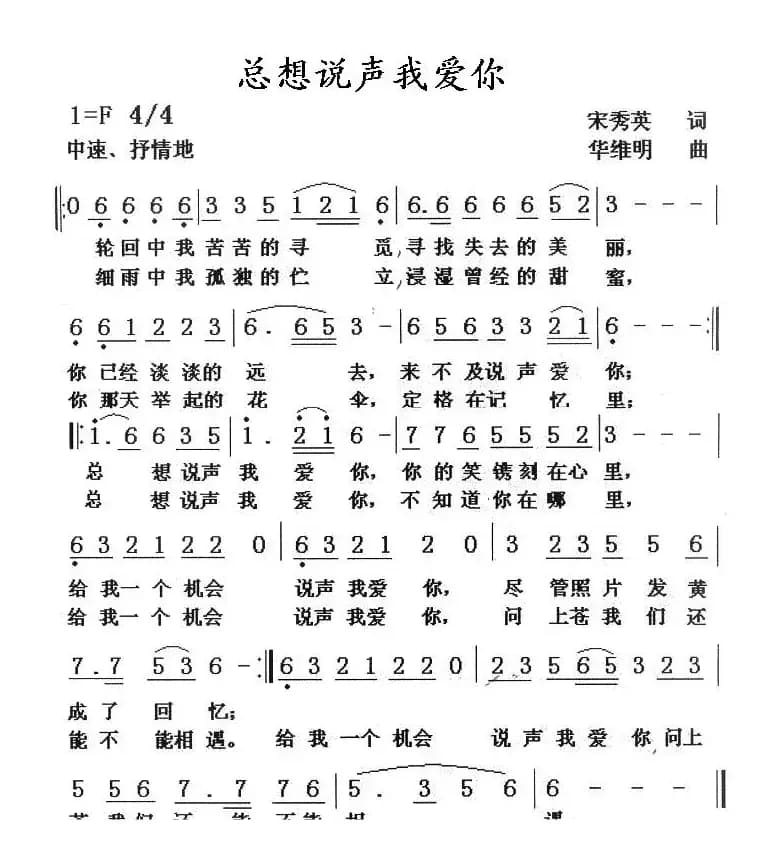 总想说声我爱你
1=F 4/4
宋秀英 词
中速、抒情地
华维明 曲
0 6 6 6 6 | 3 3 5 1 2 1 6 | 6. 6 6 6 6 5 2 | 3 - - - |
轮回中我苦苦的寻 觅,寻找失去的美 丽,
细雨中我孤独的伫 立,浸湿曾经的甜 蜜,
6 6 1 2 2 3 | 6 . 6 5 3 - | 6 5 6 3 3 2 1 | 6 - - - :||
你 已经 淡淡的 远 去, 来 不 及说 声 爱 你;
你 那天 举起的 花 伞, 定 格 在记 忆 里;
||: 1 . 6 6 3 5 | 1 . 2 1 6 - | 7 7 6 5 5 5 2 | 3 - - - |
总 想 说声 我 爱 你, 你 的 笑 镌 刻 在心 里,
总 想 说声 我 爱 你, 不 知 道 你 在 哪 里,
6 3 2 1 2 2 0 | 6 3 2 1 2 0 | 3 2 3 5 5 6 |
给 我一 个 机会 说声 我爱 你, 尽 管照 片 发 黄
给 我一 个 机会 说声 我爱 你, 问 上苍 我 们 还
7 . 7 5 3 6 - :|| 6 3 2 1 2 2 0 | 2 3 5 6 5 3 2 3 |
成 了 回 忆;
能 不 能相 遇。 给 我 一 个 机会 说 声 我 爱 你 问上
5 5 6 7 . 7 | 7 6 7 6 | 5 . 3 5 6 | 6 - - - |
苍 我们 还 能 不能 相 遇